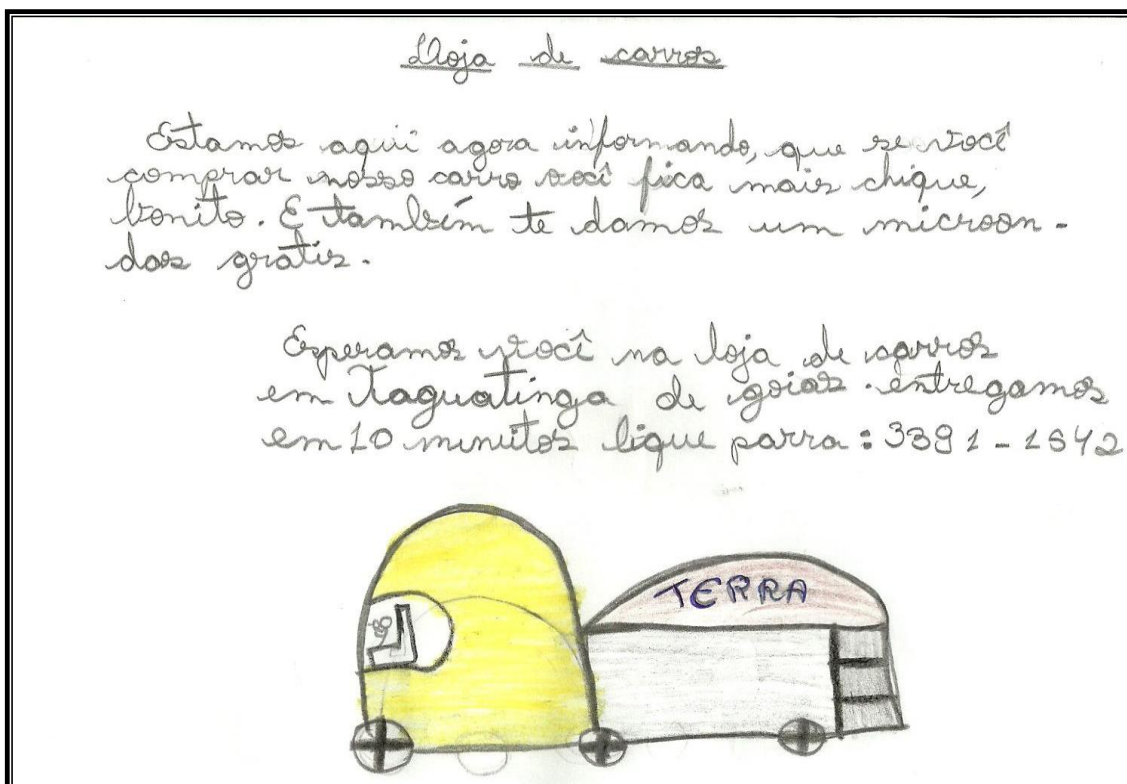 Lloja de carros
Estamos aqui agora informando, que se você
comprar nosso carro você fica mais chique,
bonito. E também te damos um microon-
das gratis.
Esperamos você na loja de carros
em Taguatinga de goias. entregamos
em 10 minutos ligue parra: 3381-1542
TERRA